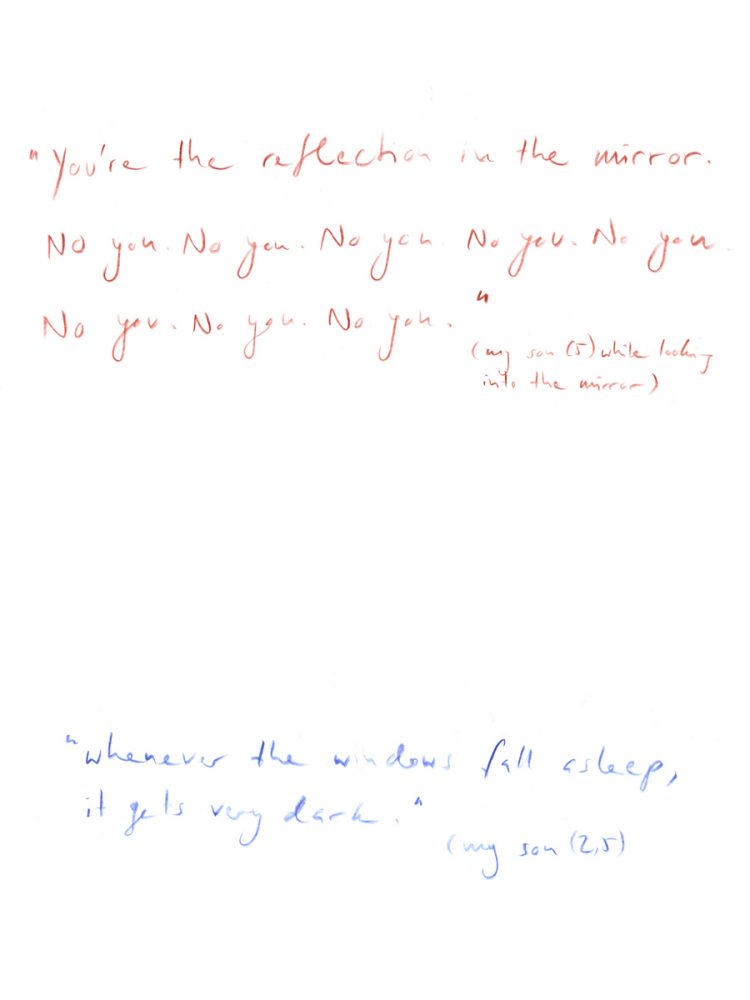 "You're the reflection in the mirror.
No you. No you. No you. No you. No you.
No you. No you. No you."
(my son (5) while looking
into the mirror)
"whenever the windows fall asleep,
it gets very dark."
(my son (2,5)